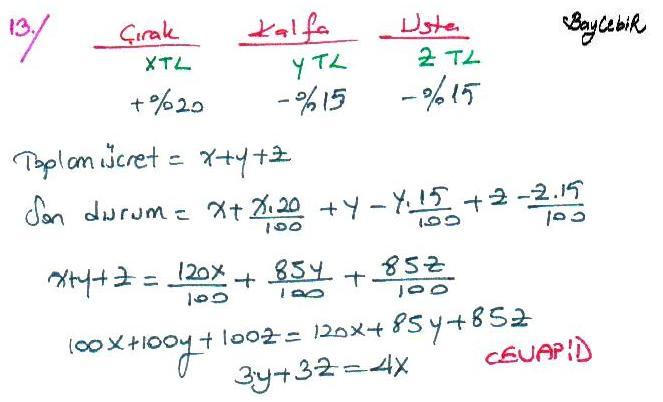 13./ Çırak Kalfa Usta BayCebiR
x TL y TL z TL
+%20 -%15 -%15
Toplam ücret = x+y+z
Son durum = x + x.20/100 + y - y.15/100 + z - z.15/100
x+y+z = 120x/100 + 85y/100 + 85z/100
100x+100y+100z = 120x+85y+85z
3y+3z=4x CEVAP:D